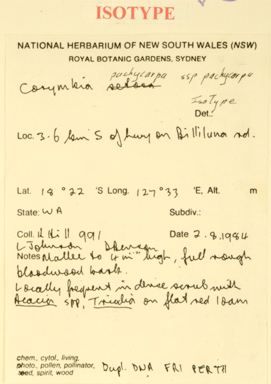 ISOTYPE
NATIONAL HERBARIUM OF NEW SOUTH WALES (NSW)
ROYAL BOTANIC GARDENS, SYDNEY
pachycarpa ssp pachycarpa
Corymbia setosa
Isotype
Det.:
Loc. 3.6 km S of hwy on Billiluna rd.
Lat. 18 ° 22 'S Long. 127 ° 33 'E, Alt. m
State: WA Subdiv.:
Coll. K Hill 991 Date 2.8.1984
L Johnson D Benson
Notes Mallee to 4 m high, full rough
bloodwood bark.
Locally frequent in dense scrub with
Acacia spp, Triodia on flat red loam
chem., cytol., living,
photo., pollen, pollinator,
seed, spirit, wood
Dupl. DNA FRI PERTH